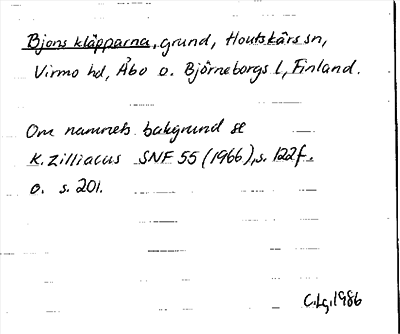 Bjons kläpparna, grund, Houtskärs sn,
Virmo hd, Åbo o. Björneborgs l, Finland.
Om namnets bakgrund se
K. Zilliacus SNF 55 (1966), s. 122f.
o. s. 201.
C.Lg. 1986